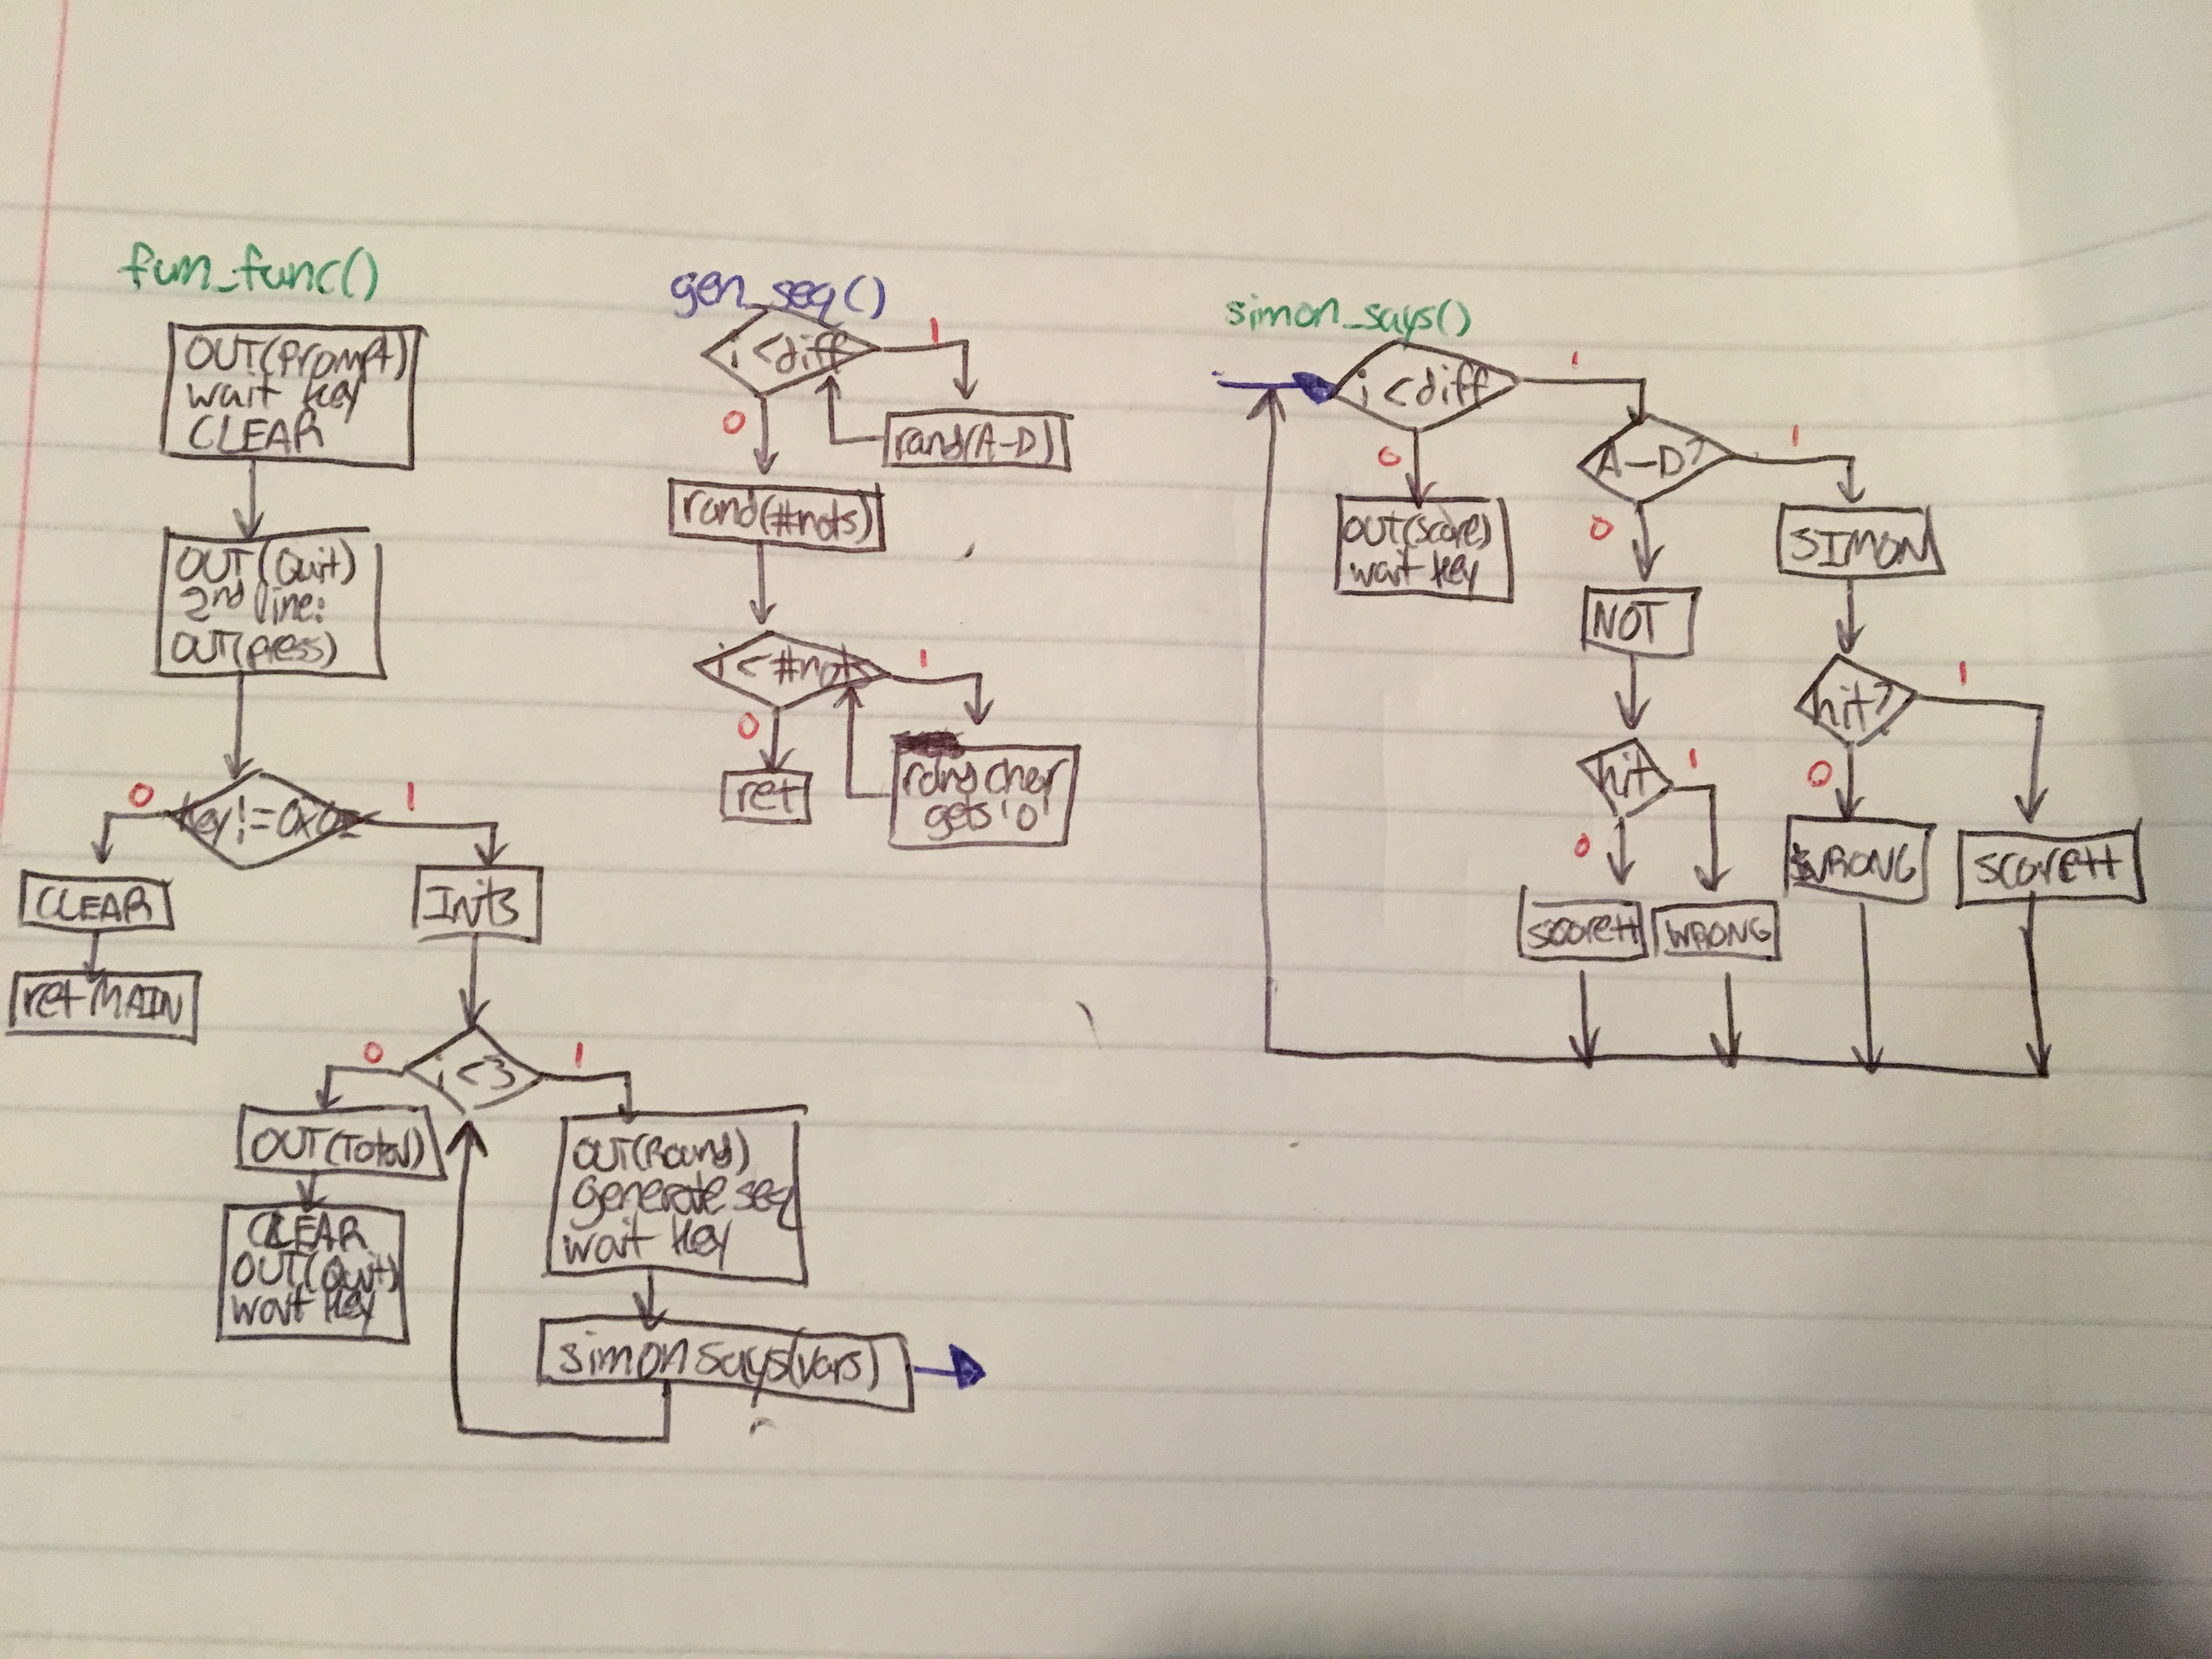 fun_func()
OUT(prompt)
wait key
CLEAR
OUT(Quit)
2nd line:
OUT(press)
key != 0x0
0
1
CLEAR
ret MAIN
Inits
i <3
0
1
OUT(Total)
CLEAR
OUT(Quit)
wait key
OUT(Round)
generate_seq
wait key
simonsays(vars)
gen_seq()
i <diff
0
1
rand(A-D)
rand(#nots)
i <#not
0
1
ret
char
gets '0'
simon_says()
i <diff
0
1
OUT(score)
wait key
A-D?
0
1
NOT
hit
0
1
score++
WRONG
SIMON
hit?
0
1
WRONG
score++